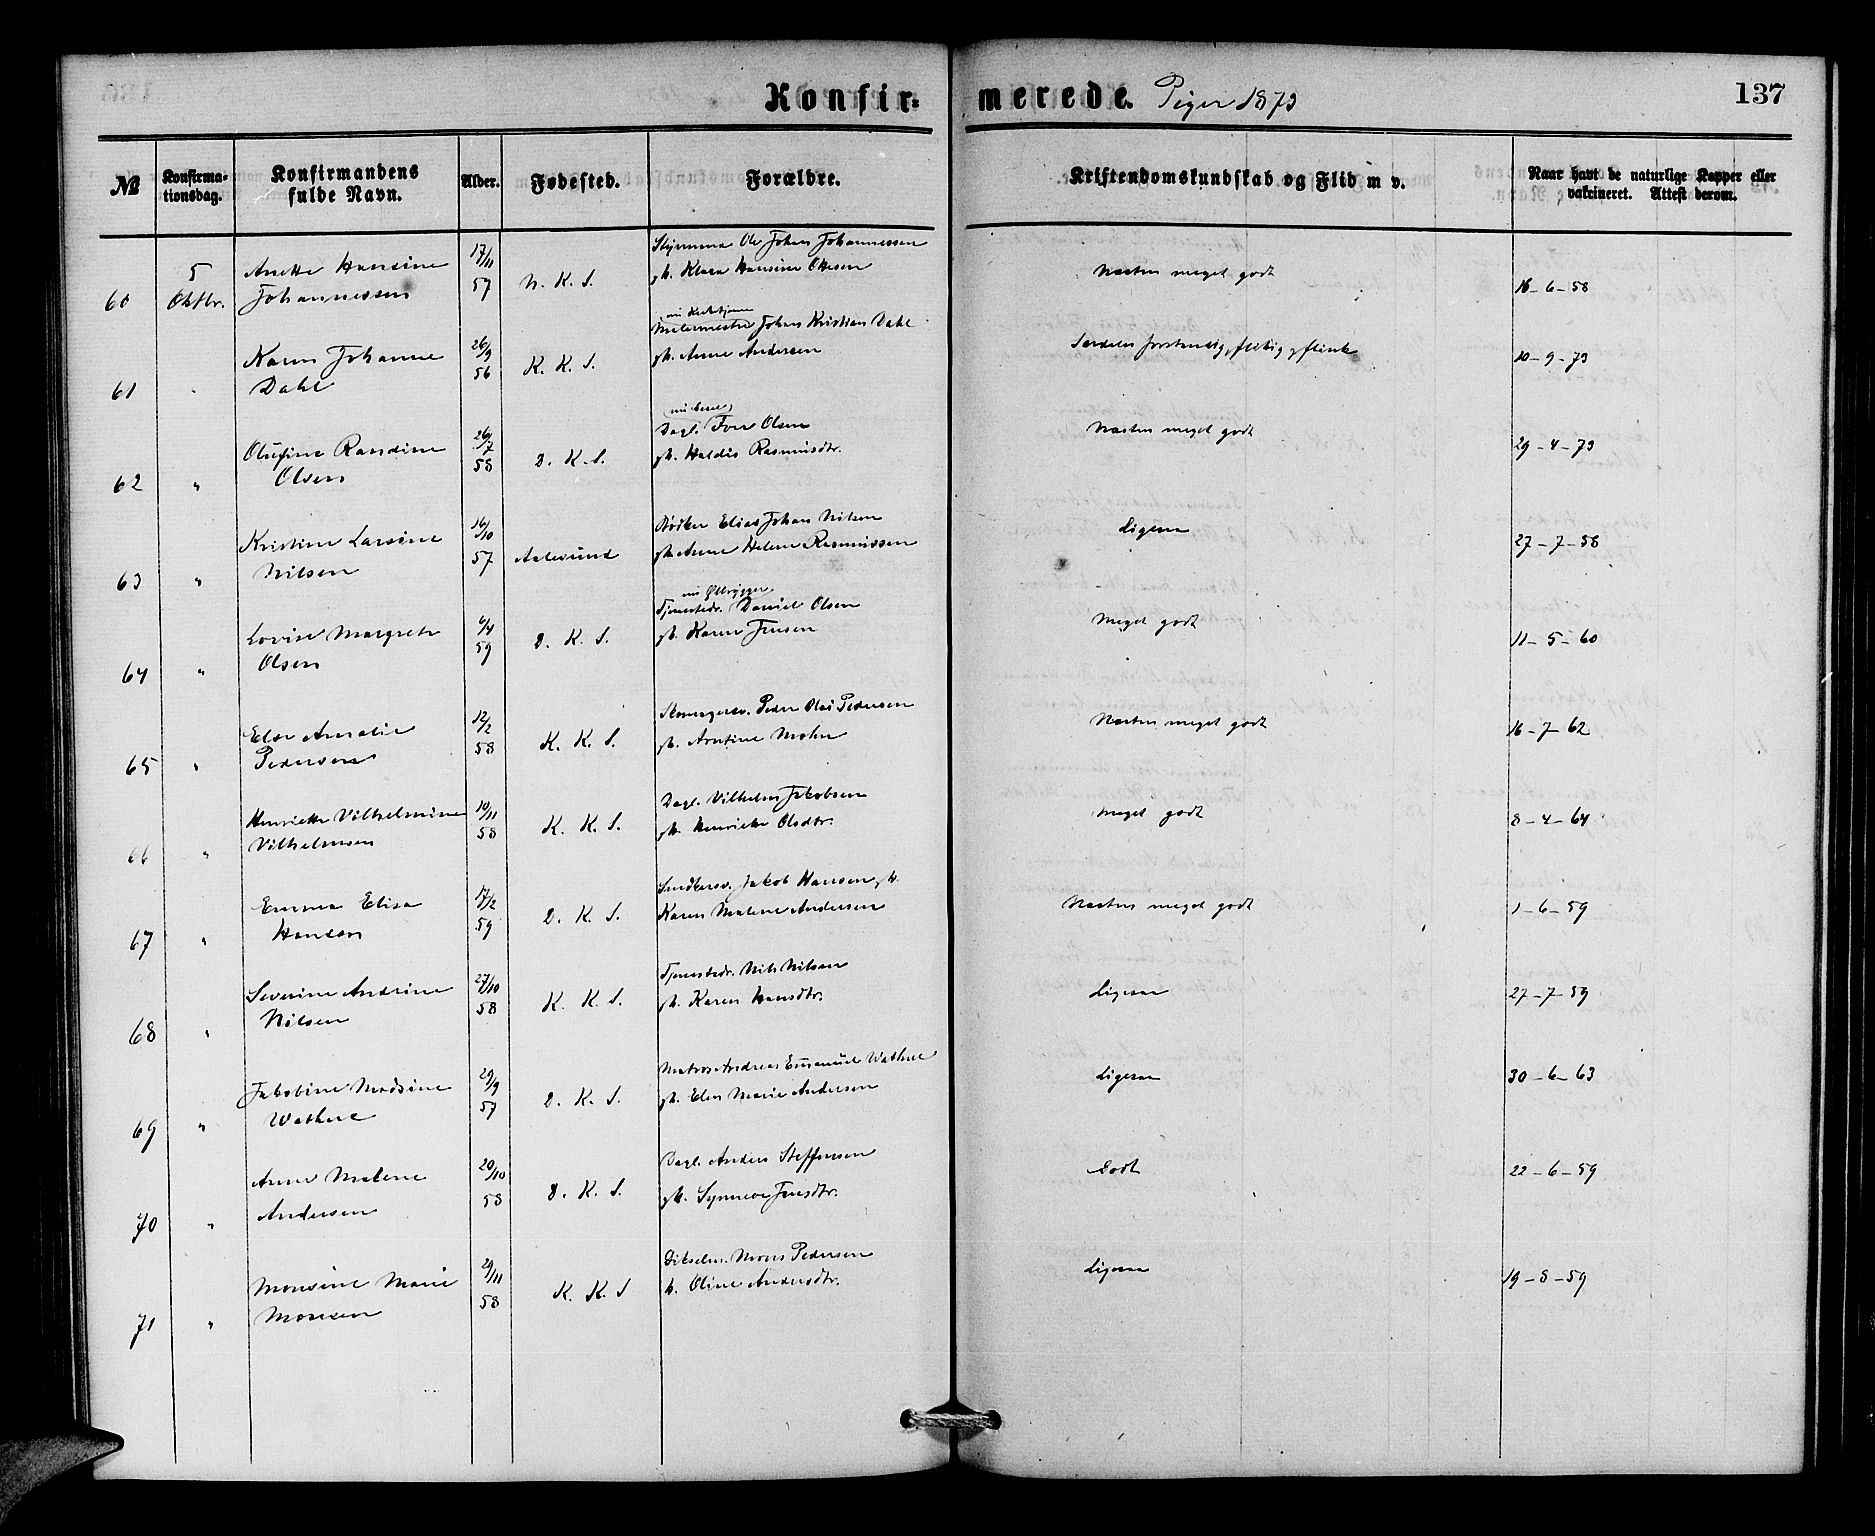 Konfirmerede. Piger 1873
137
№ Konfirmationsdag. Konfirmandens fulde Navn. Alder. Fødested. Forældre. Kristendomskundskab og Flid m v. Naar havt de naturlige Kopper eller vakcineret. Attest derom.
60 5 Oktbr. Anette Hansine Johannessen 17/11 57 N. K. S. Ole Johan Johannessen gh. Klara Hansine Ottesen Næsten meget godt 16-6-58
61 Karen Johanne Dahl 26/9 56 K. K. S. Malermester Johan Kristian Dahl gh. Anne Andersen Særdeles forstandig, flittig, flink 10-9-73
62 " Olufine Randine Olsen 26/7 58 D. K. S. Dagl. Iver Olsen gh. Haldis Rasmusdtr. Næsten meget godt 29-4-73
63 " Kristine Larsine Nilsen 16/10 57 Aalesund Bødker Elias Johan Nilsen gh. Anne Helene Rasmussen Ligesaa 27-7-58
64 " Lovise Margrete Olsen 6/4 59 D. K. S. Tjenestedr. Daniel Olsen gh. Karen Jensen Meget godt 11-5-60
65 " Else Amalie Pedersen 12/2 58 K. K. S. Skomagersv. Peder Olai Pedersen gh. Arntine Mohn Næsten meget godt 16-7-62
66 " Henriette Vilhelmine Vilhelmsen 10/11 58 K. K. S. Dagl. Vilhelm Jakobsen gh. Henrikke Olsdtr. Meget godt 8-4-64
67 " Emma Elisa Hansen 17/2 59 D. K. S. Smedsv. Jakob Hansen gh. Karen Malene Andersen Næsten meget godt 1-6-59
68 " Severine Andrine Nilsen 27/10 58 K. K. S. Tjenestedr. Nils Nilsen gh. Karen Hansdtr. Ligesaa 27-7-59
69 " Jakobine Madsine Wathne 29/9 57 D. K. S. Matros Andreas Emanuel Wathne gh. Elen Marie Andersen Ligesaa 30-6-63
70 " Anne Malene Andersen 20/10 58 D. K. S. Dagl. Anders Steffensen gh. Synneve Jensdtr. Godt 22-6-59
71 " Monsine Marie Monsen 29/11 58 K. K. S Mons Pedersen h. Oline Andersdtr. Ligesaa 19-8-59